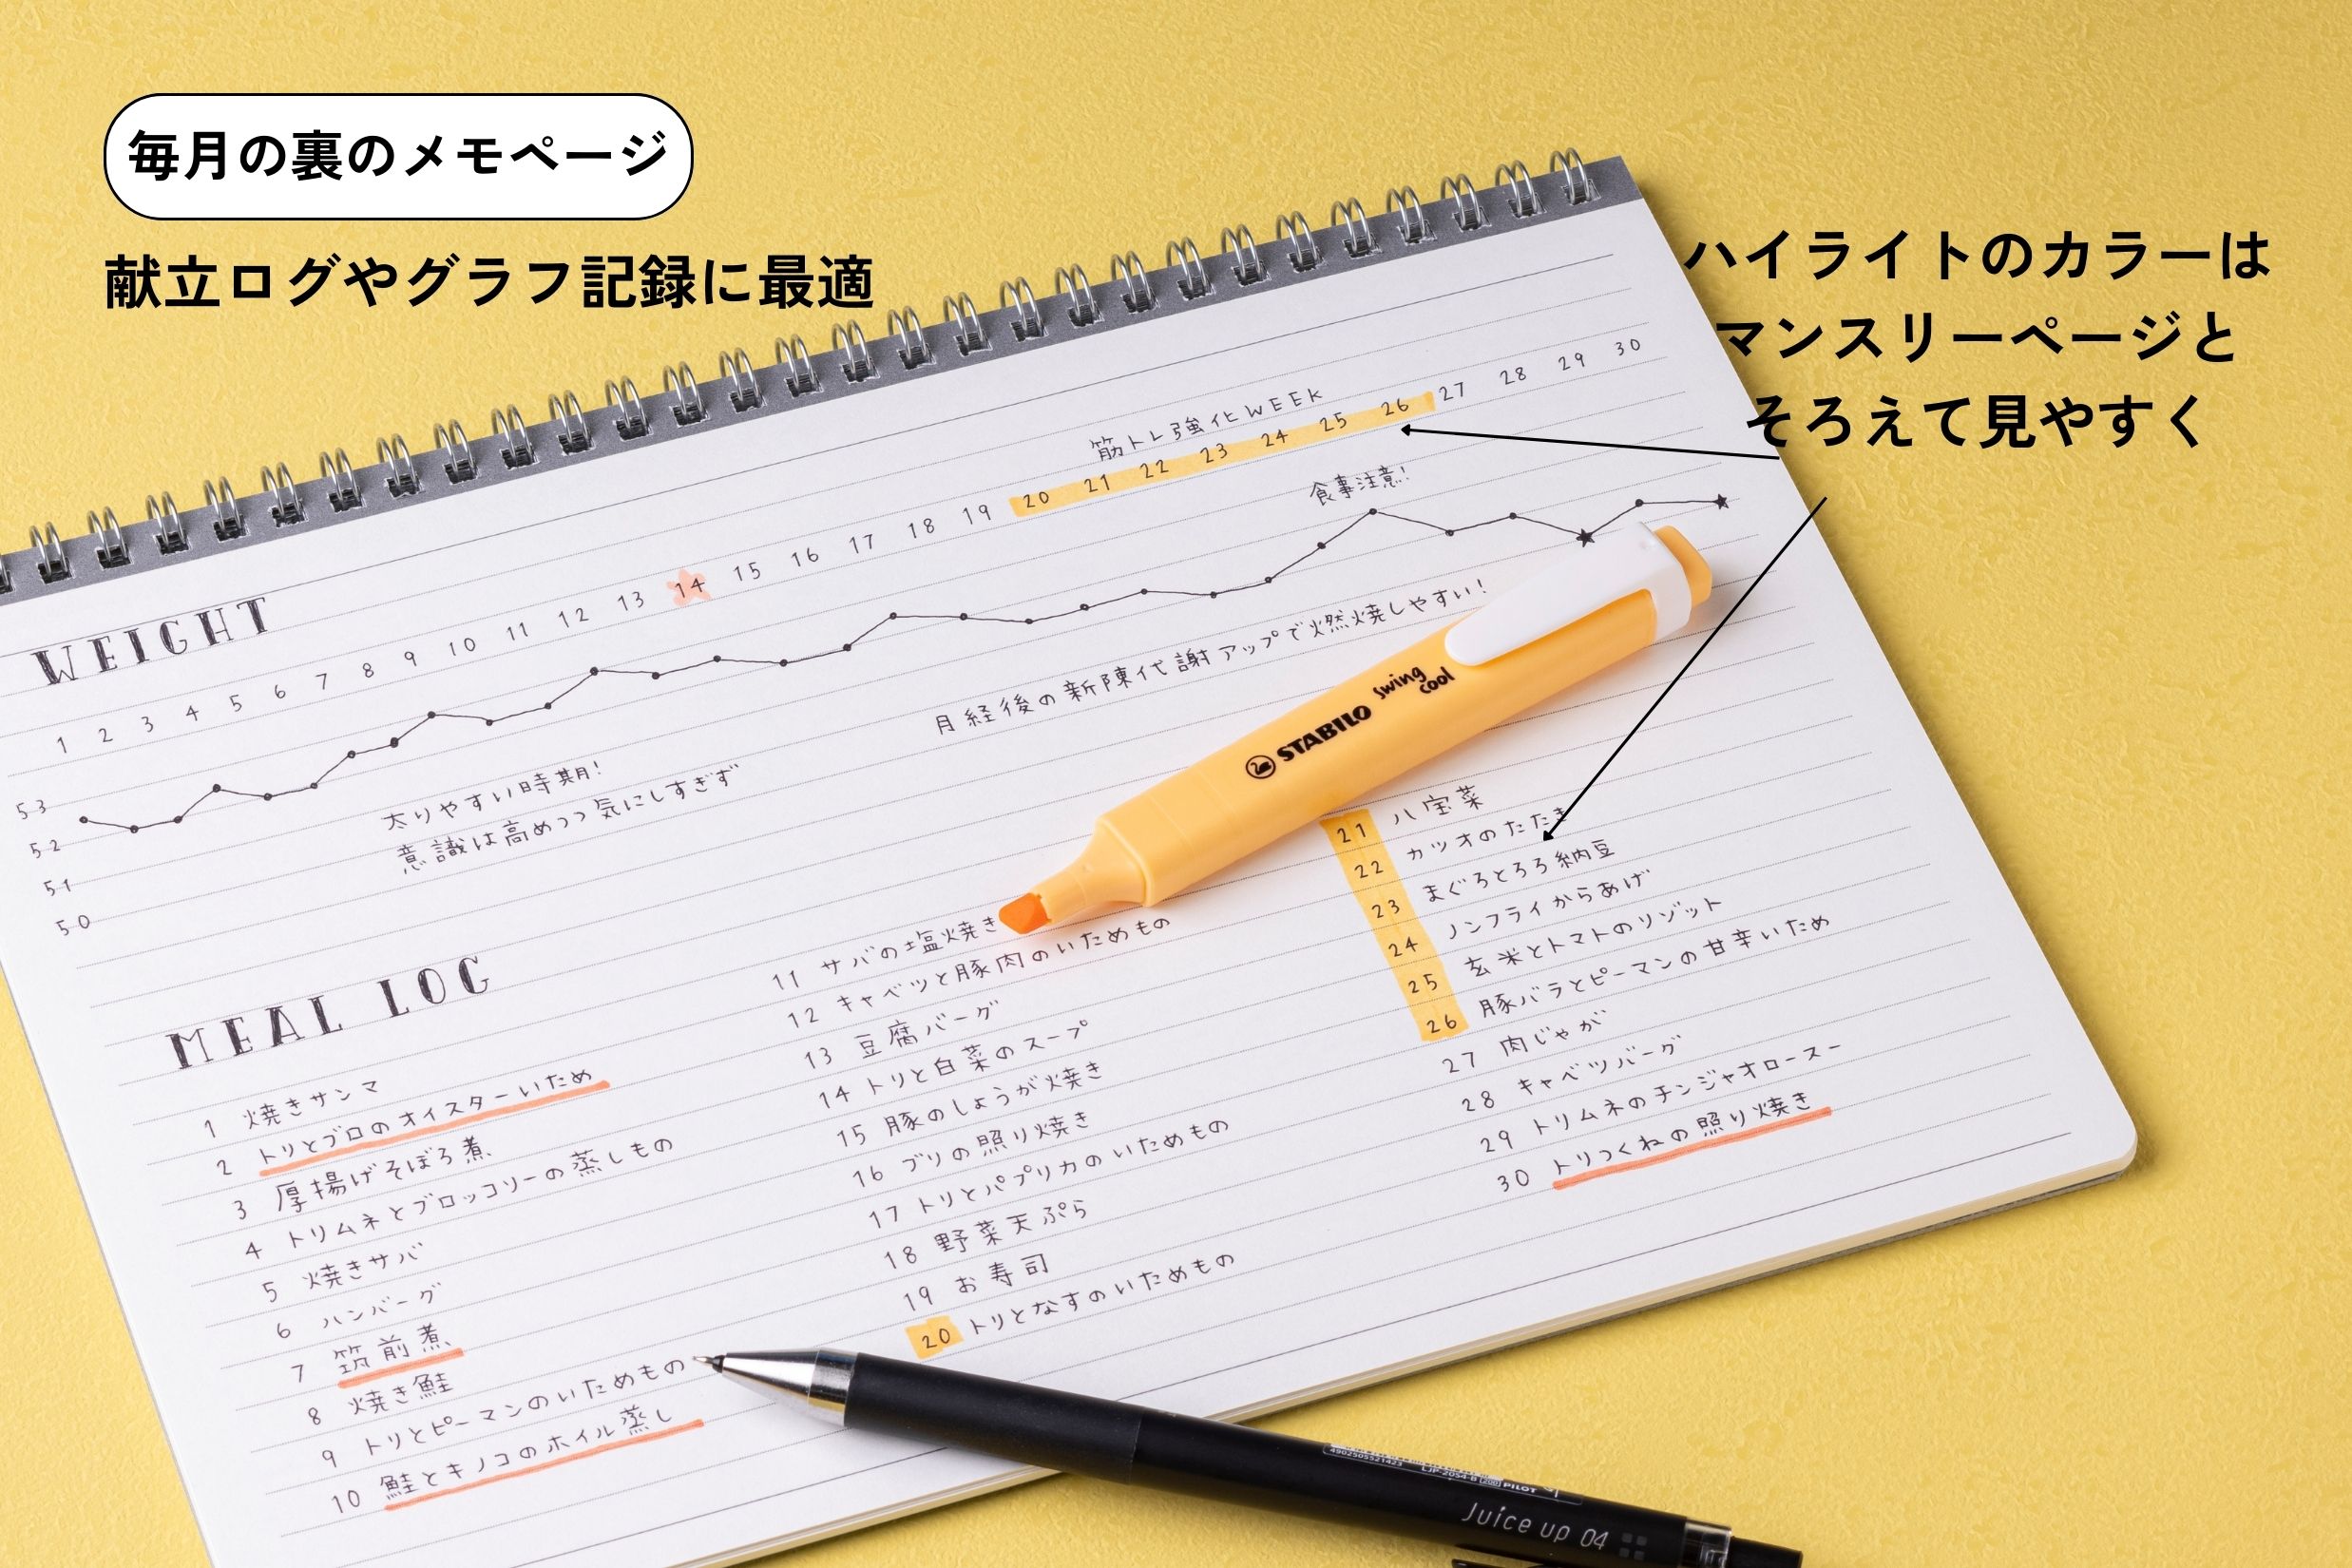 毎月の裏のメモページ
献立ログやグラフ記録に最適
ハイライトのカラーは
マンスリーページと
そろえて見やすく
WEIGHT
1 2 3 4 5 6 7 8 9 10 11 12 13 14 15 16 17 18 19 20 21 22 23 24 25 26 27 28 29 30
筋トレ強化WEEK
食事注意!
53
52
51
50
太りやすい時期!
意識は高めつつ気にしすぎず
月経後の新陳代謝アップで燃焼しやすい!
MEAL LOG
1 焼きサンマ
2 トリとブロのオイスターいため
3 厚揚げそぼろ煮
4 トリムネとブロッコリーの蒸しもの
5 焼きサバ
6 ハンバーグ
7 筑前煮
8 焼き鮭
9 トリとピーマンのいためもの
10 鮭とキノコのホイル蒸し
11 サバの塩焼き
12 キャベツと豚肉のいためもの
13 豆腐バーグ
14 トリと白菜のスープ
15 豚のしょうが焼き
16 ブリの照り焼き
17 トリとパプリカのいためもの
18 野菜天ぷら
19 お寿司
20 トリとなすのいためもの
21 八宝菜
22 カツオのたたき
23 まぐろとろろ納豆
24 ノンフライからあげ
25 玄米とトマトのリゾット
26 豚バラとピーマンの甘辛いため
27 肉じゃが
28 キャベツバーグ
29 トリムネのチンジャオロースー
30 トリつくねの照り焼き
STABILO swing cool
4902505521423
LJP-20S4-B PILOT
Juice up 04